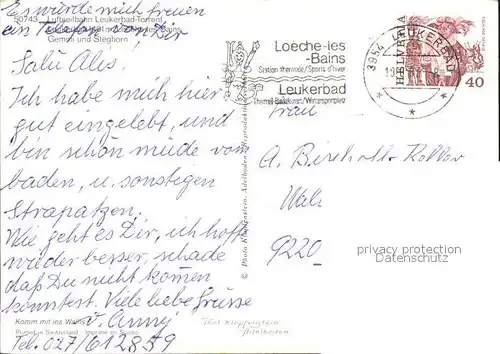 Es würde mich freuen
ein Telefon von Dir
50743 Luftseilbahn Leukerbad-Torrent
Gemmi und Steghorn
Salü Alis.
Ich habe mich hier
gut eingelebt, und
bin schon müde vom
baden, u. sonstigen
Strapatzen.
Wie geht es Dir, ich hoffe
wieder besser, schade
daß Du nicht kommen
könntest. Viele liebe Grüsse
v. Anny
Tel. 027/612859
Komm mit ins Wallis
Printed in Switzerland Imprimé en Suisse
© Photo Klopfenstein, Adelboden
Loèche-les
-Bains
Station thermale/Sports d'hiver
Leukerbad
Thermal-Badekurort/Wintersportplatz
3954 LEUKERBAD
HELVETIA
40
Frau
A. Bischof-Keller
9220
privacy protection
Documentation
Thel Klopfenstein
Adelboden